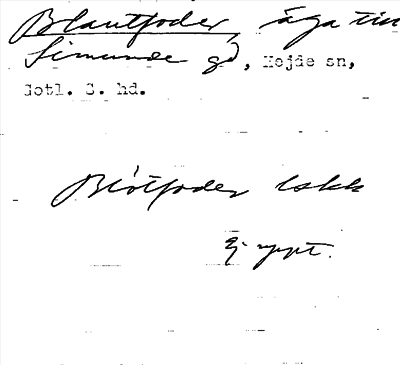 Blautfoder, äga till
Simunde gd, Hejde sn,
Gotl. S. hd.
Blötfoder lskk
Ej uppt.